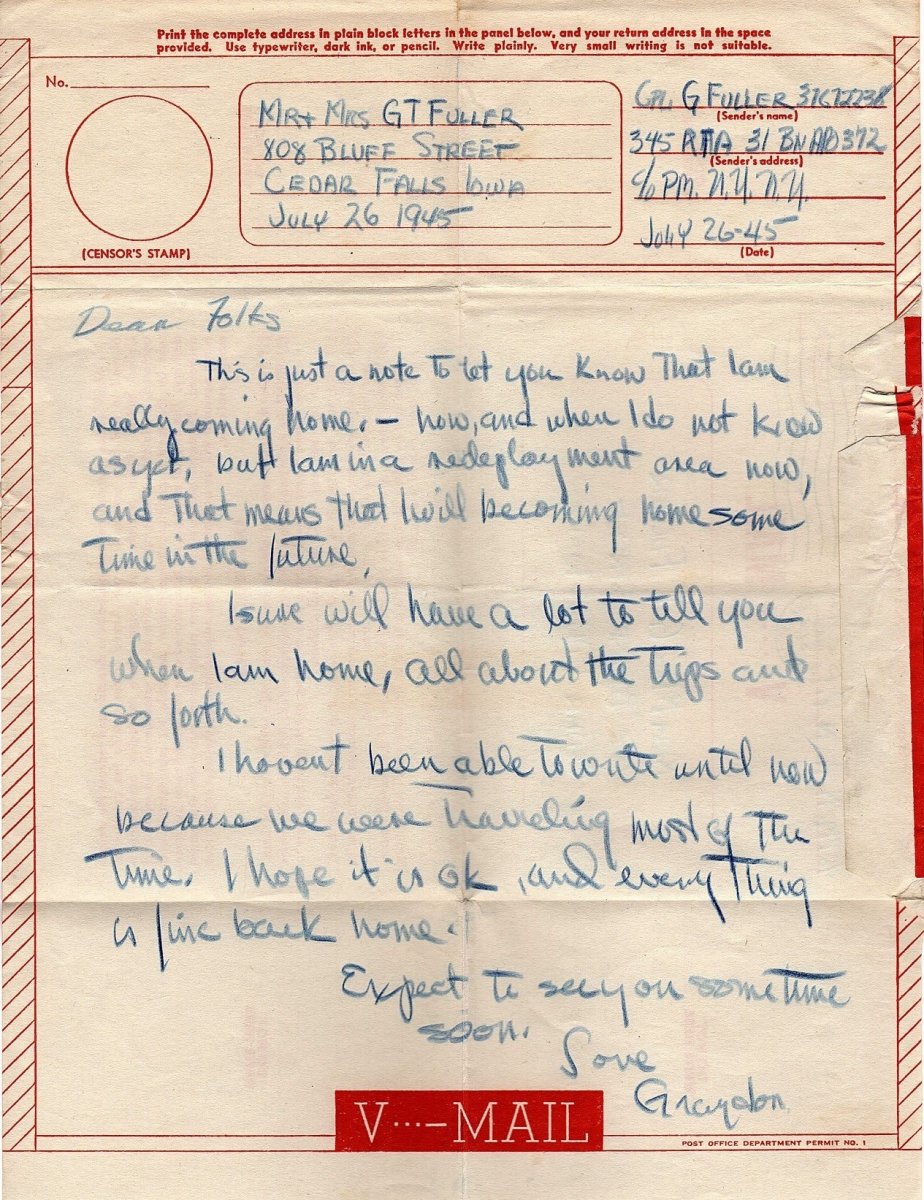 Print the complete address in plain block letters in the panel below, and your return address in the space
provided. Use typewriter, dark ink, or pencil. Write plainly. Very small writing is not suitable.
No.
(CENSOR'S STAMP)
MR + MRS GT FULLER
808 BLUFF STREET
CEDAR FALLS IOWA
JULY 26 1945
CPL G FULLER
(Sender's name)
345 31 BN 372
(Sender's address)
c/o PM. N.Y. N.Y.
JULY 26-45
(Date)
Dear Folks
This is just a note to let you know that I am
really coming home. – how, and when I do not know
as yet, but I am in a redeployment area now,
and that means that I will be coming home some
time in the future,
I sure will have a lot to tell you
when I am home, all about the trips and
so forth.
I havent been able to write until now
because we were traveling most of the
time. I hope it is ok, and every thing
is fine back home.
Expect to see you some time
soon.
Love
Graydon
V···—MAIL
POST OFFICE DEPARTMENT PERMIT NO. 1